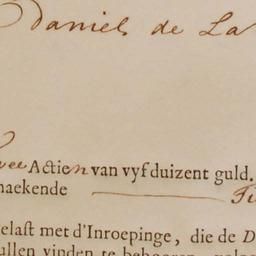 Daniel de La
vee Actien van vyf duizent guld.
maekende
elast met d'Inroepinge, die de D
ullen vinden te behooren